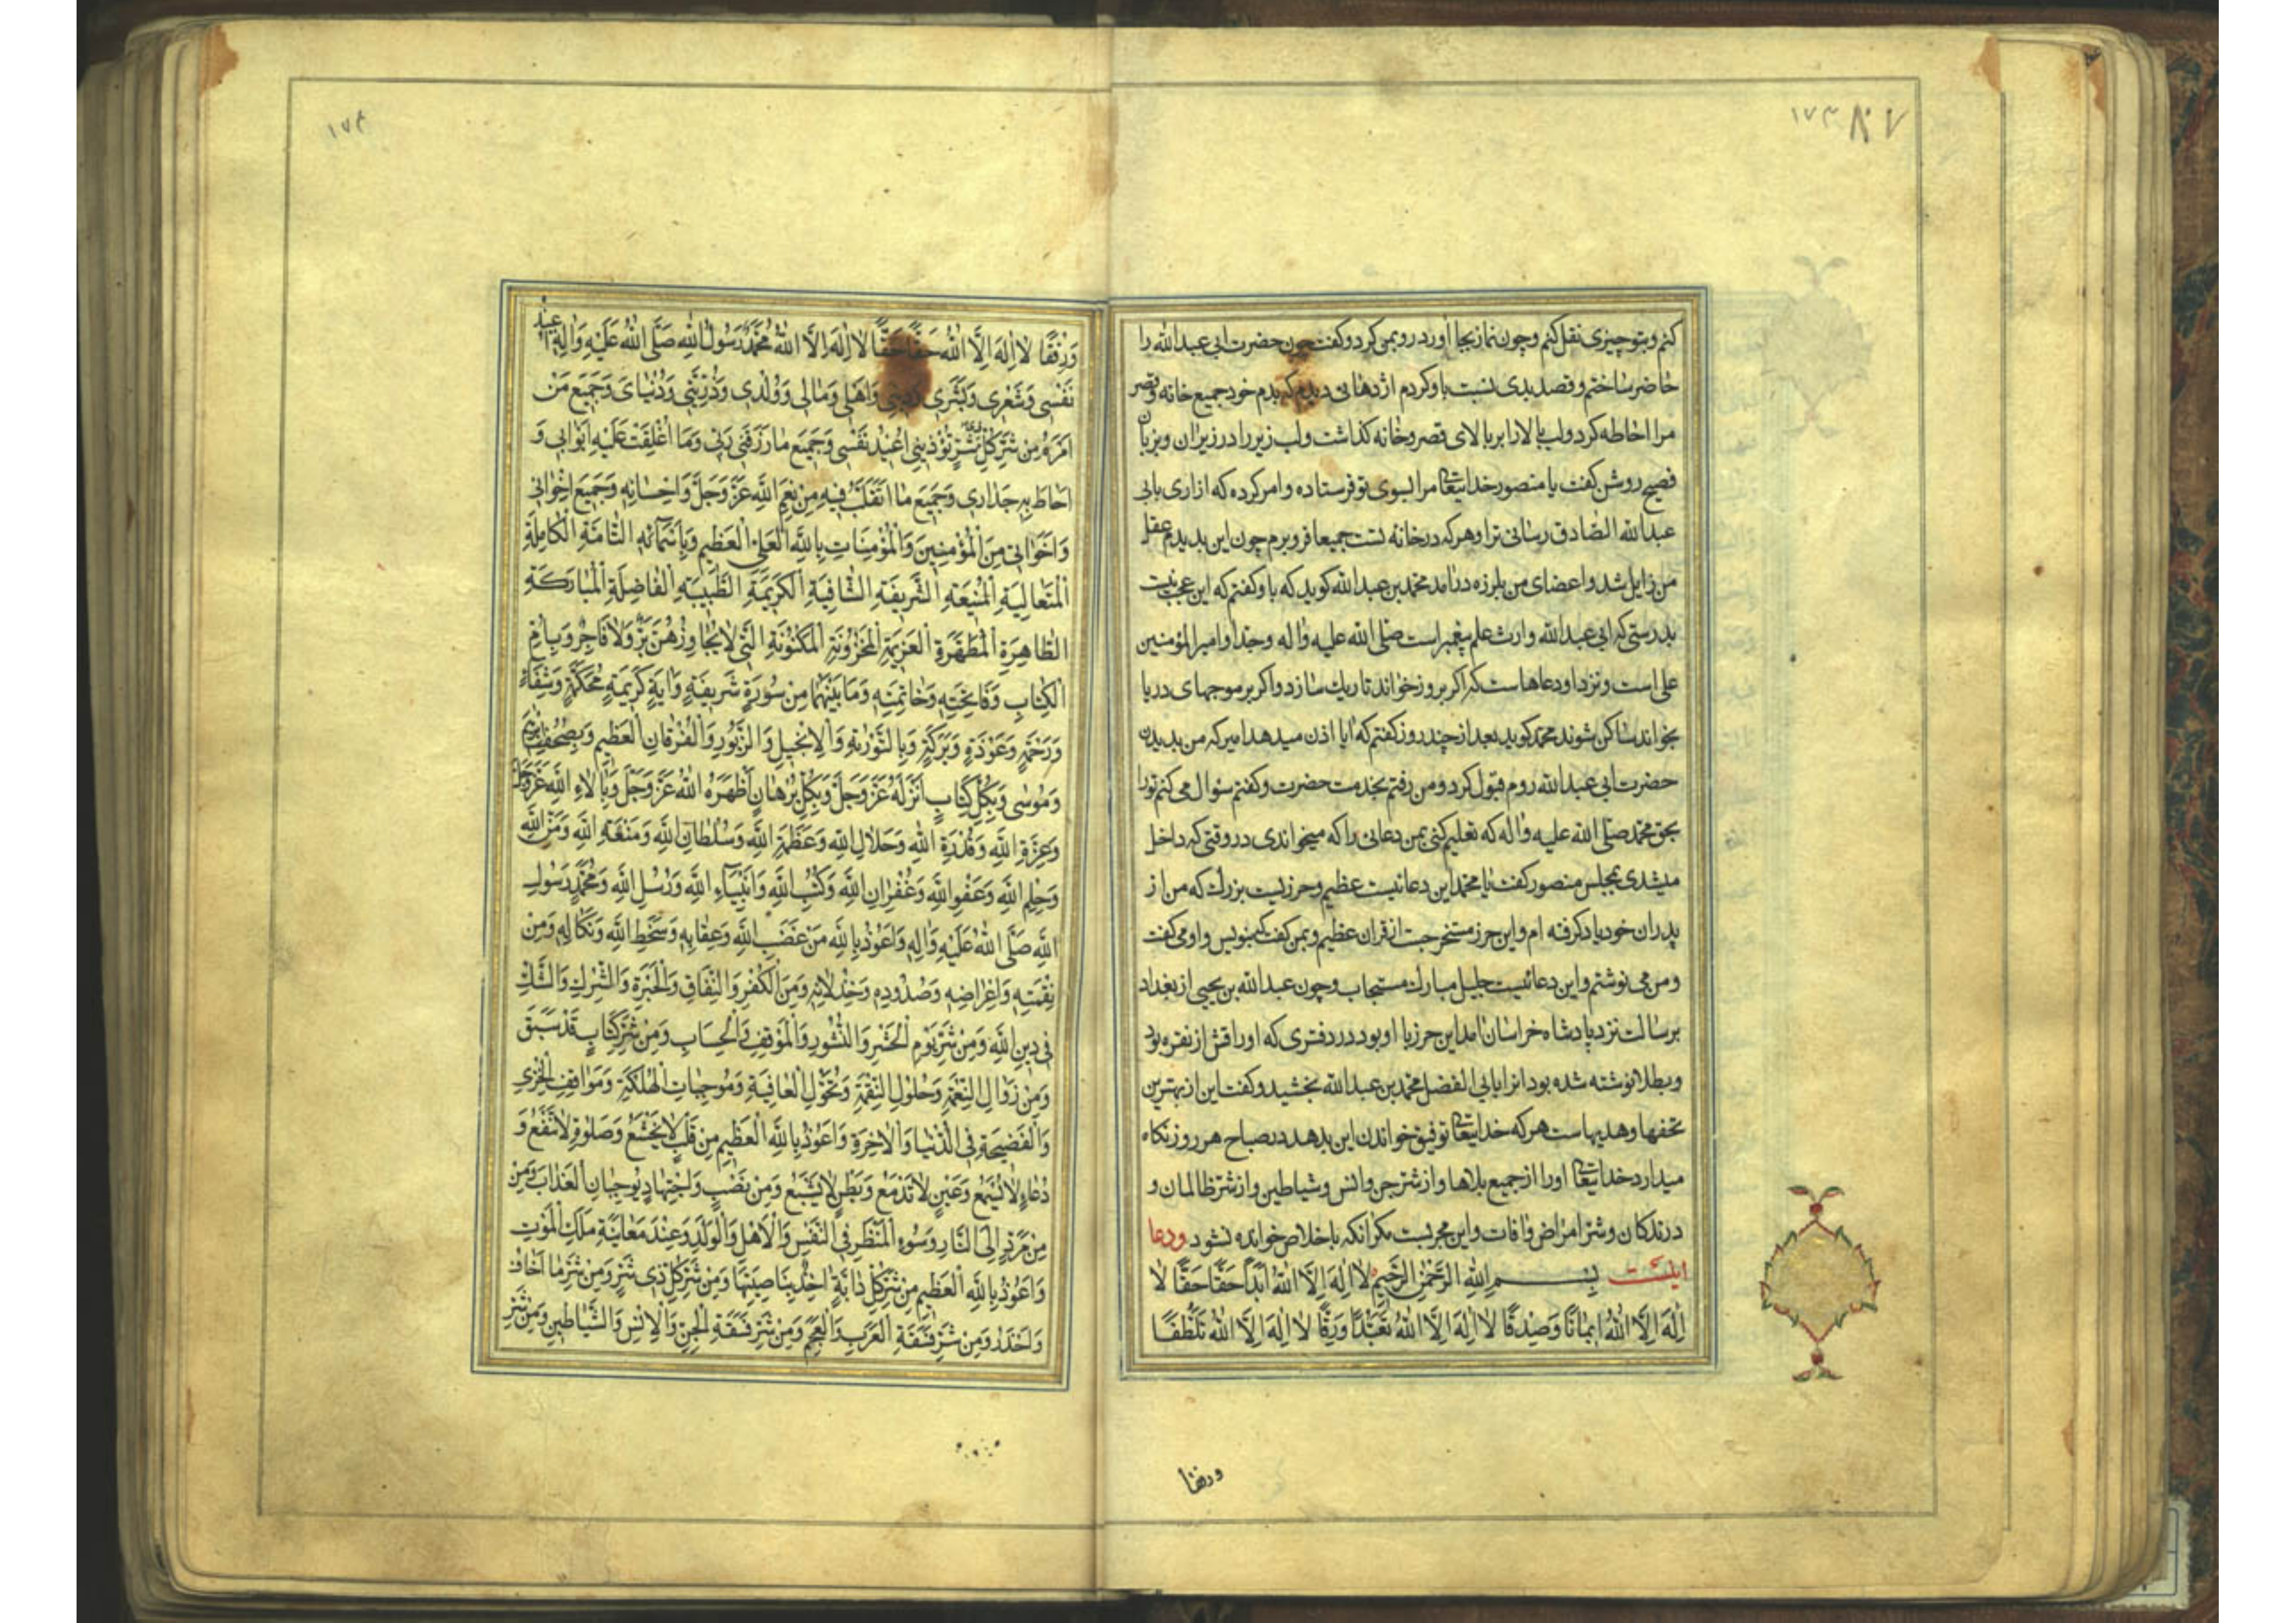 ١٧٣ ٨٧
کنم و بتو چیزی نقل کنم و چون نماز بجا آورد رو بمن کرد و کفت چون حضرت ابی عبدالله را
حاضر ساختم و قصد بدی نسبت باو کردم اژدهائی دیدم که بدم خود جمیع خانه و قصر
مرا احاطه کرد و لب بالا را بر بالای قصر و خانه کذاشت و لب زیر را در زیر ان و بزبان
فصیح روشن کفت یا منصور خدایتعالی مرا بسوی تو فرستاده و امر کرده که ازاری بابی
عبدالله الصادق رسانی ترا و هر که در خانه تست جمیعا فرو برم چون این بدیدم عقل
من زایل شد و اعضای من بلرزه درامد محمد بن عبدالله کوید که باو کفتم که این عجب نیست
بدرستی که ابی عبدالله وارث علم پیغمبر است صلی الله علیه و اله و جد او امیر المؤمنین
علی است و نزد او دعاها ست که اکر بروز خواند تاریك سازد و اکر بر موجهای دریا
بخواند ساکن شوند محمد کوید بعد از چند روز کفتم که ایا اذن میدهد امیر که من بدیدن
حضرت ابی عبدالله روم قبول کرد و من رفتم بخدمت حضرت و کفتم سؤال می کنم تو را
بحق محمد صلی الله علیه و اله که تعلیم کنی بمن دعائی را که میخواندی در وقتی که داخل
میشدی بمجلس منصور کفت یا محمد این دعائیست عظیم و حرزیست بزرك که من از
پدران خود یاد کرفته ام و این حرز مستخرجست از قران عظیم و بمن کفت که بنویس و او می کفت
و من می نوشتم و این دعائیست جلیل مبارك مستجاب و چون عبدالله بن یحیی از بغداد
برسالت نزد پادشاه خراسان امد این حرز با او بود در دفتری که اوراقش از نقره بود
و بطلا نوشته شده بود انرا بابی الفضل محمد بن عبدالله بخشید و کفت این از بهترین
تحفها و هدیها ست هر که خدایتعالی توفیق خواندن این بدهد در صباح هر روز نکاه
میدارد خدایتعالی او را از جمیع بلاها و از شر جن و انس و شیاطین و از شر ظالمان و
درندکان و شر امراض و افات و این مجربست مکر انکه باخلاص خوانده نشود و دعا
اینست بِسمِ اللهِ الرَّحْمٰنِ الرَّحیمِ لا اِلٰهَ اِلَّا اللهُ اَبَداً حَقًّا حَقًّا لا
اِلٰهَ اِلَّا اللهُ ایمانًا وَصِدْقًا لا اِلٰهَ اِلَّا اللهُ تَعَبُّدًا وَرِقًّا لا اِلٰهَ اِلَّا اللهُ تَلَطُّفًا
ورفقا
١٧٤
وَرِفْقًا لا اِلٰهَ اِلَّا اللهُ حَقًّا حَقًّا لا اِلٰهَ اِلَّا اللهُ مُحَمَّدٌ رَسُولُ اللهِ صَلَّى اللهُ عَلَیْهِ وَالِهِ اُعیذُ
نَفْسی وَشَعْری وَبَشَری وَدینی وَاَهْلی وَمالی وَوُلْدی وَذُرِّیَّتی وَدُنْیایَ وَجَمیعَ مَنْ
اَمْرُهُ مِنْ شَرِّ كُلِّ شَرٍّ تُؤْذینی اُعیذُ نَفْسی وَجَمیعَ ما رَزَقَنی رَبّی وَما اُغْلِقَتْ عَلَیْهِ اَبْوابی وَ
اَحاطَ بِهِ جِدارى وَجَمیعَ ما اَتَقَلَّبُ فیهِ مِنْ نِعَمِ اللهِ عَزَّ وَجَلَّ وَاِحْسانِهِ وَجَمیعَ اِخْوانی
وَاَخَواتی مِنَ الْمُؤْمِنینَ وَالْمُؤْمِناتِ بِاللهِ الْعَلِىِّ الْعَظیمِ وَبِاَسْمائِهِ التّامَّةِ الْكامِلَةِ
الْمُتَعالِیَةِ الْمُنیعَةِ الشَّریفَةِ الشّافِیَةِ الْكَریمَةِ الطَّیِّبَةِ الْفاضِلَةِ الْمُبارَكَةِ
الطّاهِرَةِ الْمُطَهَّرَةِ الْعَزیزَةِ الْمَخْزُونَةِ الْمَكْنُونَةِ الَّتی لا یُجاوِزُهُنَّ بَرٌّ وَلا فاجِرٌ وَبِاُمِّ
الْكِتابِ وَفاتِحَتِهِ وَخاتِمَتِهِ وَما بَیْنَهُما مِنْ سُورَةٍ شَریفَةٍ وَایَةٍ كَریمَةٍ مُحْكَمَةٍ وَشِفاءٍ
وَرَحْمَةٍ وَعَوْذَةٍ وَبَرَكَةٍ وَبِالتَّوْریةِ وَالْاِنْجیلِ وَالزَّبُورِ وَالْفُرْقانِ الْعَظیمِ وَبِصُحُفِ اِبْرهیمَ
وَمُوسی وَبِكُلِّ كِتابٍ اَنْزَلَهُ عَزَّ وَجَلَّ وَبِكُلِّ بُرْهانٍ اَظْهَرَهُ اللهُ عَزَّ وَجَلَّ وَبِالاءِ اللهِ عَزَّ وَجَلَّ
وَعِزَّةِ اللهِ وَقُدْرَةِ اللهِ وَجَلالِ اللهِ وَعَظَمَةِ اللهِ وَسُلْطانِ اللهِ وَمَنْعَةِ اللهِ وَمَنِّ اللهِ
وَحِلْمِ اللهِ وَعَفْوِ اللهِ وَغُفْرانِ اللهِ وَكُتُبِ اللهِ وَاَنْبِیاءِ اللهِ وَرُسُلِ اللهِ وَمُحَمَّدٍ رَسُولِ
اللهِ صَلَّى اللهُ عَلَیْهِ وَالِهِ وَاَعُوذُ بِاللهِ مِنْ غَضَبِ اللهِ وَعِقابِهِ وَسَخَطِ اللهِ وَنَكالِهِ وَمِنْ
نِقْمَتِهِ وَاِعْراضِهِ وَصُدُودِهِ وَخِذْلانِهِ وَمِنَ الْكُفْرِ وَالنِّفاقِ وَالْحَیْرَةِ وَالشِّرْكِ وَالشَّكِّ
فی دینِ اللهِ وَمِنْ شَرِّ یَوْمِ الْحَشْرِ وَالنُّشُورِ وَالْمَوْقِفِ وَالْحِسابِ وَمِنْ شَرِّ كِتابٍ قَدْ سَبَقَ
وَمِنْ زَوالِ النِّعْمَةِ وَحُلُولِ النِّقْمَةِ وَتَحَوُّلِ الْعافِیَةِ وَمُوجِباتِ الْهَلَكَةِ وَمَواقِفِ الْخِزْىِ
وَالْفَضیحَةِ فِی الدُّنْیا وَالْاخِرَةِ وَاَعُوذُ بِاللهِ الْعَظیمِ مِنْ قَلْبٍ لا یَخْشَعُ وَصَلوةٍ لا تَنْفَعُ وَ
دُعاءٍ لا یُسْمَعُ وَعَیْنٍ لا تَدْمَعُ وَبَطْنٍ لا یَشْبَعُ وَمِنْ نَصَبٍ وَاجْتِهادٍ یُوجِبانِ الْعَذابَ وَمِنْ
مَرَدٍّ اِلَى النّارِ وَسُوءِ الْمَنْظَرِ فِی النَّفْسِ وَالْاَهْلِ وَالْوَلَدِ وَعِنْدَ مُعایَنَةِ مَلَكِ الْمَوْتِ
وَاَعُوذُ بِاللهِ الْعَظیمِ مِنْ شَرِّ كُلِّ دابَّةٍ اخِذٌ بِناصِیَتِها وَمِنْ شَرِّ كُلِّ ذى شَرٍّ وَمِنْ شَرِّ ما اَخافُ
وَاَحْذَرُ وَمِنْ شَرِّ فَسَقَةِ الْعَرَبِ وَالْعَجَمِ وَمِنْ شَرِّ فَسَقَةِ الْجِنِّ وَالْاِنْسِ وَالشَّیاطینِ وَمِنْ شَرِّ